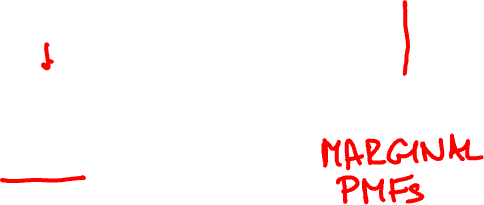 MARGINAL
PMFs